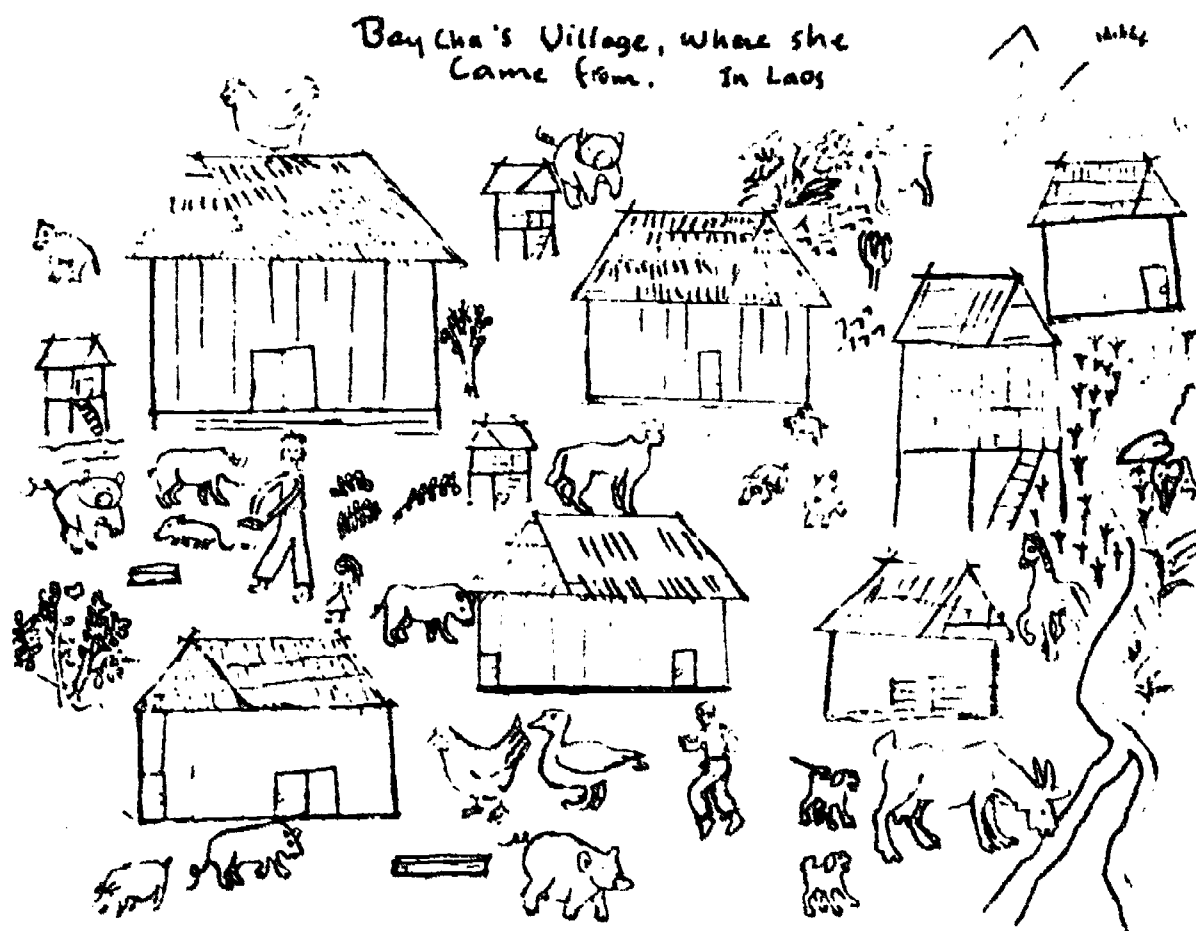 Bay Cha's Village, where she
Came from. In Laos